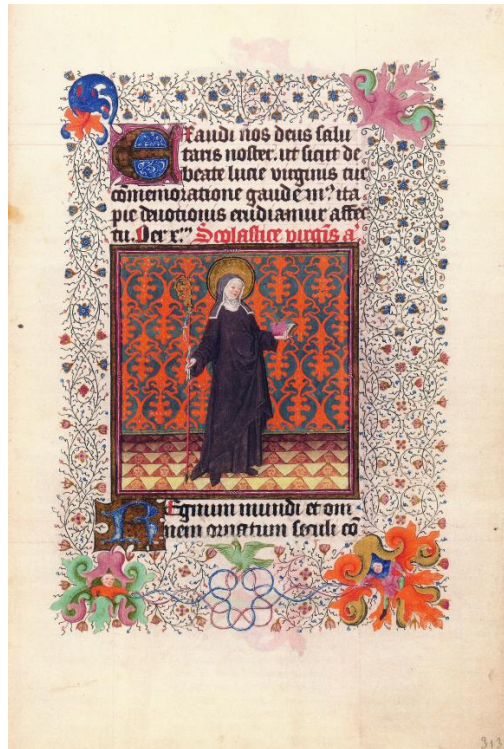 Exaudi nos deus salu
taris noster. ut sicut de
beate lucie virginis tue
cōmemoratione gaudem⁹ ita
pie deuotionis erudiamur affec
tu. Per x. Scolastice virgīs a̓
Regnum mundi et om
nem ornatum seculi cō
313